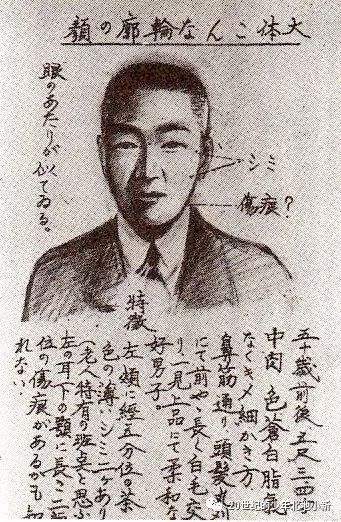 大体こんな輪廓の顔
眼のあたりが
似てゐる。
シミ
傷痕?
特徴
五十歳前後 五尺三四
中肉 色は蒼白 脂気
なくキメ細かき方
鼻筋通り 頭髪
にて前やゝ長く白毛交
り、一見上品にて柔和な
好男子。
左頬に経五分位の茶
色の薄いシミ二ケあり
(老人特有の斑点と思ふ
左の耳下の顎に長さ二
位の傷痕があるかも知
れない。